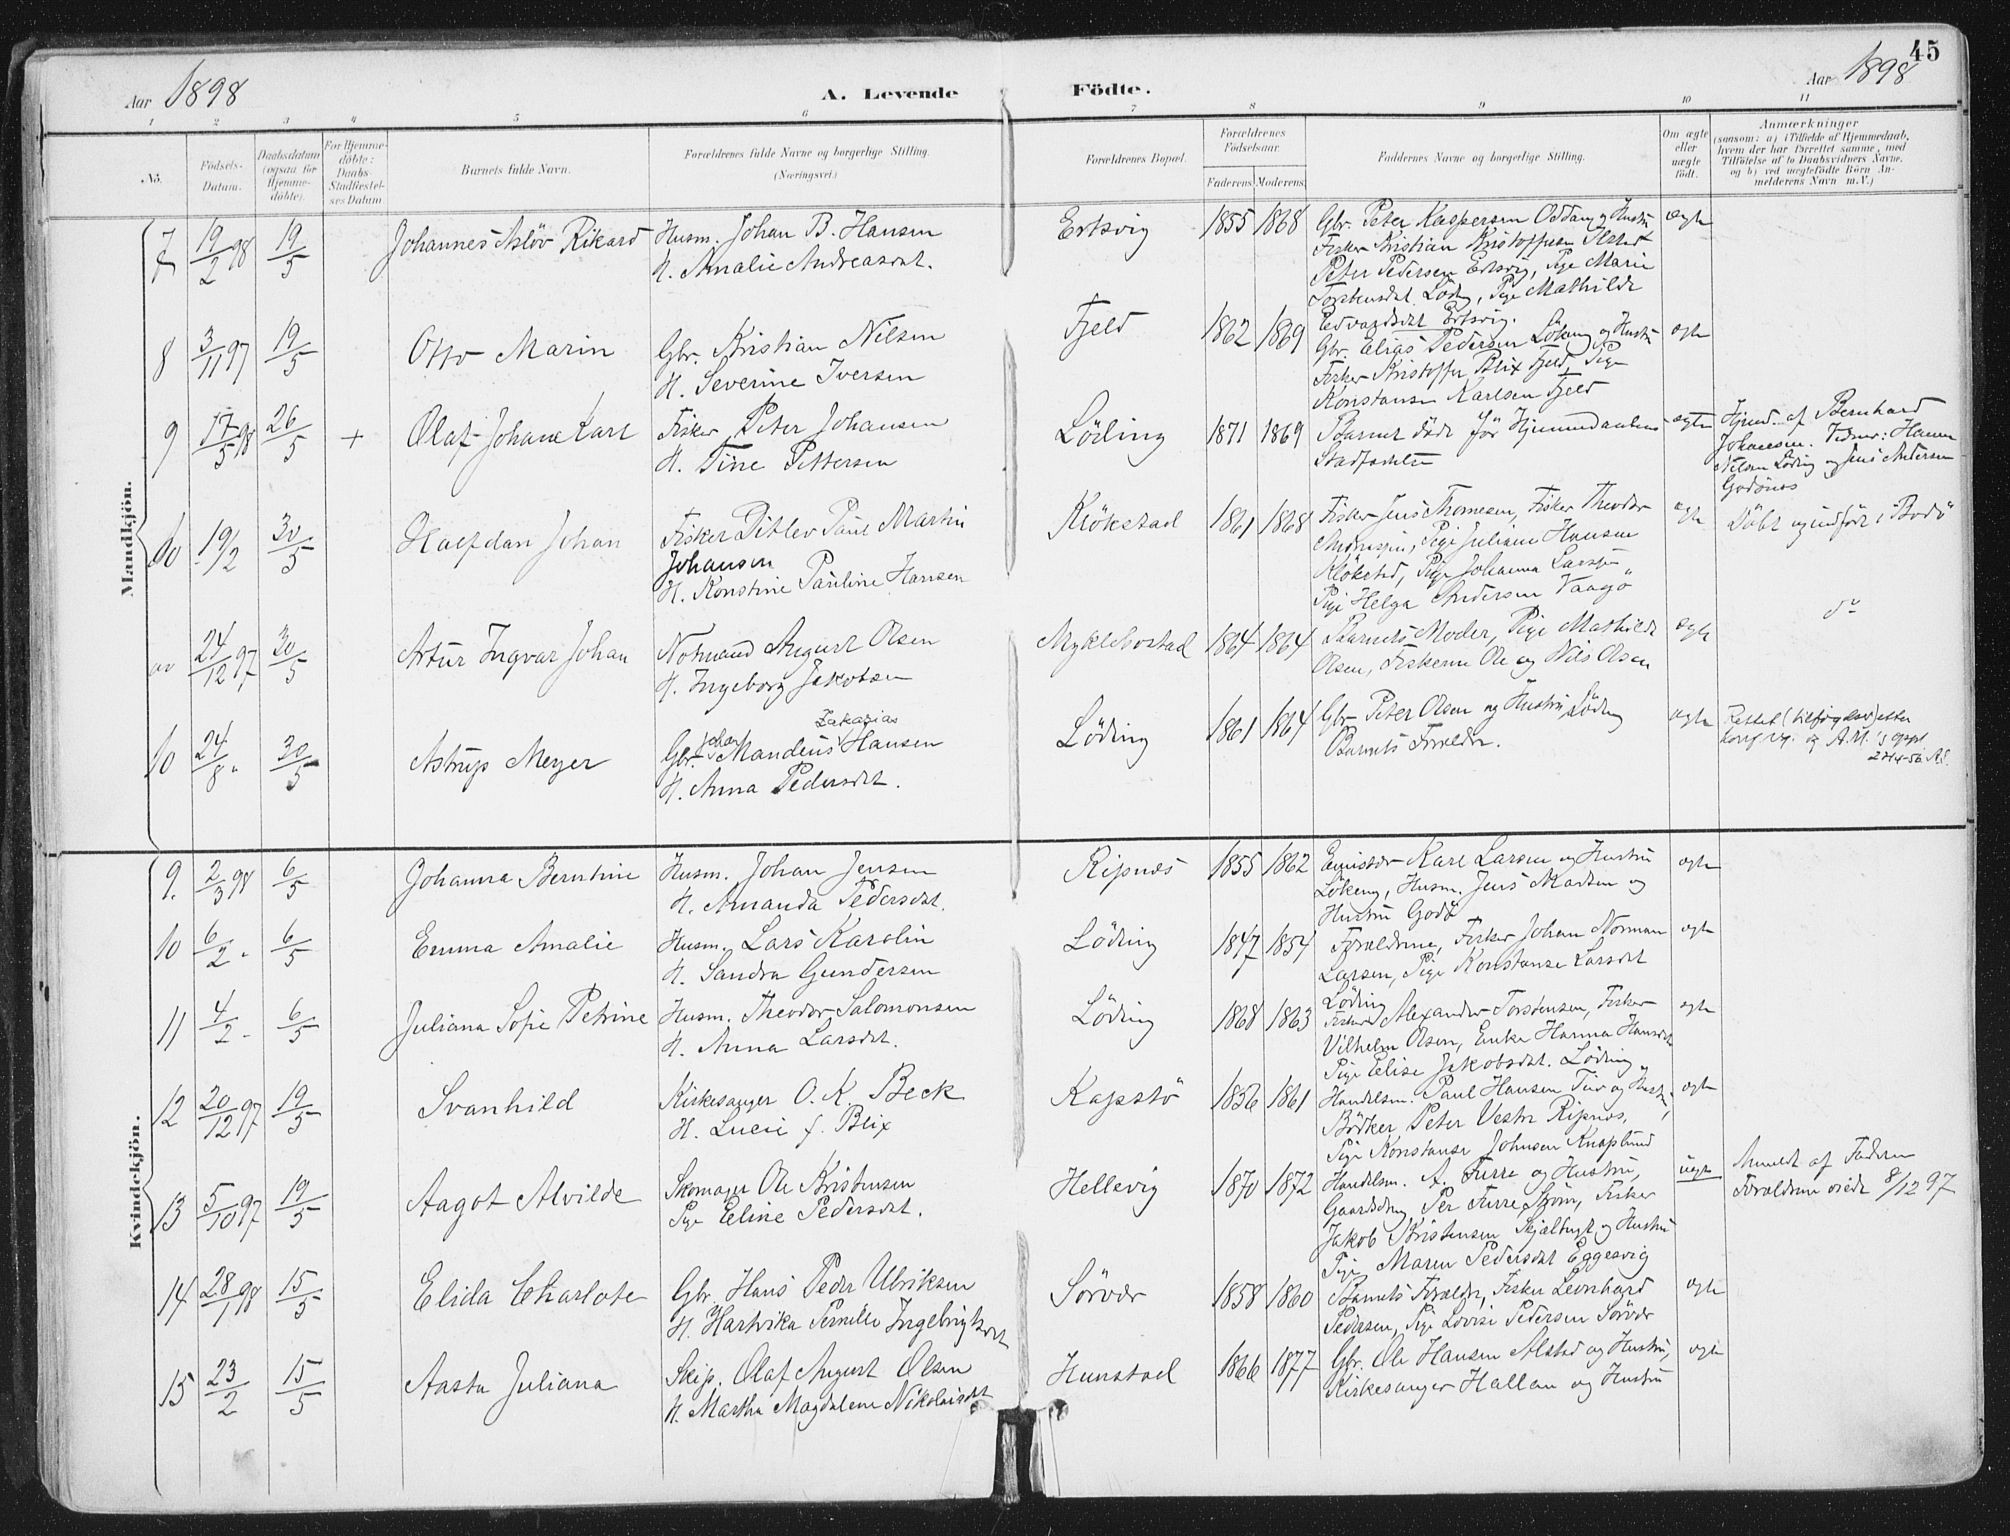 45
Aar 1898
A. Levende Födte.
Aar 1898
1 2 3 4 5 6 7 8 9 10 11
No.
Födsels-
Datum.
Daabsdatum
(ogsaa for
Hjemme-
döbte).
For Hjemme-
döbte:
Daabs-
Stadfæstel-
ses Datum
Barnets fulde Navn.
Forældrenes fulde Navne og borgerlige Stilling.
(Næringsvei.)
Forældrenes Bopæl.
Forældrenes
Födselsaar.
Faderens. Moderens.
Faddernes Navne og borgerlige Stilling.
Om ægte
eller
uægte
födt.
Anmærkninger
(saasom: a) i Tilfælde af Hjemmedaab,
hvem der har forrettet samme, med
Tilföielse af to Daabsvidners Navne,
og b) ved uægtefödte Börn An-
melderens Navn m. V.)
Mandkjön.
7 19/2 98 19/5 Johannes Aslöv Rikard
Husm. Johan B. Hansen
H. Amalie Andreasdat.
Ertsvig 1855 1868
Gbr. Peter Kaspersen Oddan og Hustru
Fisker Kristian Kristoffersen
Peter Pedersen Ertsvig, Pige Marie
Torstensdat. Löding, Pige Mathilde
Edvardsdat Ertsvig.
ægte
8 3/11 97 19/5 Otto Marin
Gbr. Kristian Nilsen
H. Severine Iversen
Fjeld 1862 1869
Gbr. Elias Pedersen Lökeng og Hustru
Fisker Kristoffer Blix Fjeld, Pige
Konstanse Karlsen Fjeld
ægte
9 17/5 98 26/5 + Olaf Johane Karl
Fisker Peter Johansen
H. Tine Pettersen
Löding 1871 1869
Barnet döde för Hjemmedaabens
Stadfæstelse
ægte
Hjmd. af Bernhard
Johansen. Vidner: Hans
Nilsen Löding og Jens Andersen
Godönes
10 19/2 30/5 Halfdan Johan
Fisker Ditlev Paul Martin
Johansen
H. Konstine Pauline Hansen
Klökstad 1861 1868
Fisker Jens Thomesen, Fisker Theodor
Andreasen, Pige Juliane Hansen
Klökstad, Pige Johanna Larsen "
Pige Helga Andersen Vaagö
ægte
Döbt og indfört i Bodö
24/12 97 30/5 Artur Ingvar Johan
Notmand August Olsen
H. Ingeborg Jakobsen
Myklebostad 1864 1864
Barnets Moder, Pige Mathilde
Olsen, Fiskerne Ole og Nils Olsen
ægte
do
10 24/8 " 30/5 Astrup Meyer
Zakarias
Gbr. Johan Mandeus Hansen
H. Anna Pedersdat.
Löding 1861 1864
Gbr Peter Olsen og Hustru Löding
Barnets Forældre.
ægte
Rettet (tilföyelser) etter
og A.M.'s
Kvindekjön.
9. 2/3 98 6/5 Johanna Berntine
Husm. Johan Jensen
H. Amanda Pedersdat.
Ripnes 1855 1862
Karl Larsen og Hustru
Lökeng, Husm. Jens Madsen og
Hustru Godö
ægte
10 6/2 " 6/5 Emma Amalie
Husm. Lars Karolin
H. Sandra Gundersen
Löding 1847 1854
Forældrene, Fisker Johan Norman
Larsen, Pige Konstanse Larsdat
Löding
ægte
11 4/2 - 6/5 Juliana Sofie Petrine
Husm. Theodor Salomonsen
H. Anna Larsdat.
Löding 1868 1863
Fisker Alexander Torstensen, Fisker
Vilhelm Olsen, Enke Hanna Hansdat
Pige Elise Jakobsdat. Löding
ægte
12 20/12 97 19/5 Svanhild
Kirkesanger O. K. Beck
H. Lucie f. Blix
Kapstö 1836 1861
Handelsm. Paul Hansen Tuv og Hustru,
Bödker Peter Vestr Ripnes,
Pige Konstanse Johnsen Knaplund
ægte
13 5/10 97 19/5 Aagot Alvilde
Skomager Ole Kristensen
Pige Eline Pedersdat.
Hellevig 1870 1872
Handelsm. A. Furre og Hustru,
Gaardsdrg Per Furre, Stöm, Fisker
Jakob Kristensen Skjælbugt og Hustru
Pige Maren Pedersdat Eggesvig
uægte
Anmeldt af Faderen
Forældrene viede 8/12 97
14 28/1 98 15/5 Elida Charlote
Gbr. Hans Peder Ulriksen
H. Hartvika Pernille Ingebrigtsdat
Sörvær 1858 1860
Barnets Forældre, Fisker Leonhard
Pedersen, Pige Lovise Pedersen Sörvær
ægte
15 23/2 15/5 Aasta Juliana
Skip. Olaf August Olsen
H. Martha Magdalene Nikolaisdat
Hunstad 1866 1877
Gbr. Ole Hansen Alstad og Hustru,
Kirkesanger Hallan og Hustru
ægte